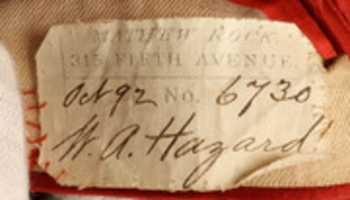 MATHEW ROCK
315 FIFTH AVENUE.
Oct 92 No. 6730
W. A. Hazard!